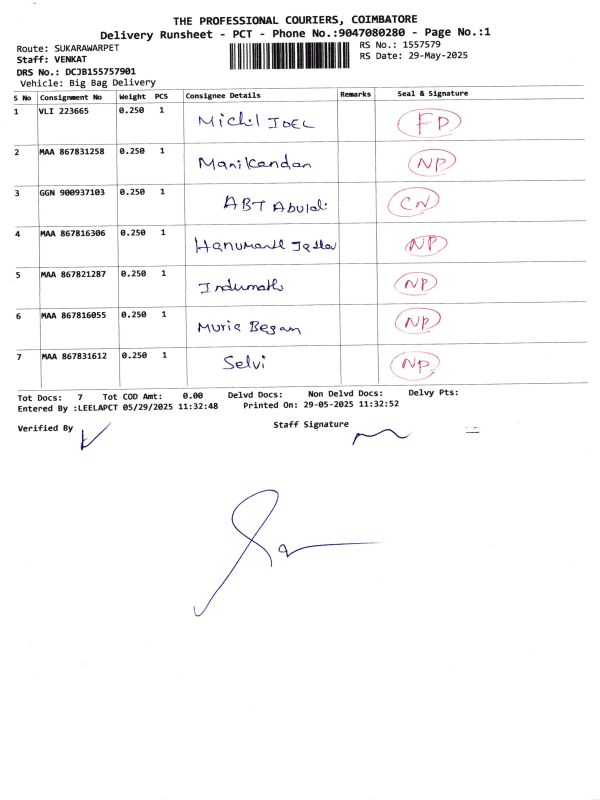 THE PROFESSIONAL COURIERS, COIMBATORE
Delivery Runsheet - PCT - Phone No.:9047080280 - Page No.:1
Route: SUKARAWARPET
RS No.: 1557579
Staff: VENKAT
RS Date: 29-May-2025
DRS No.: DCJB155757901
Vehicle: Big Bag Delivery
S No Consignment No Weight PCS Consignee Details Remarks Seal & Signature
1 VLI 223665 0.250 1 Michil JOEL FD
2 MAA 867831258 0.250 1 Manikandan NP
3 GGN 900937103 0.250 1 ABT CN
4 MAA 867816306 0.250 1 NP
5 MAA 867821287 0.250 1 Indumath NP
6 MAA 867816055 0.250 1 Began NP
7 MAA 867831612 0.250 1 Selvi NP
Tot Docs: 7 Tot COD Amt: 0.00 Delvd Docs: Non Delvd Docs: Delvy Pts:
Entered By :LEELAPCT 05/29/2025 11:32:48 Printed On: 29-05-2025 11:32:52
Verified By Staff Signature